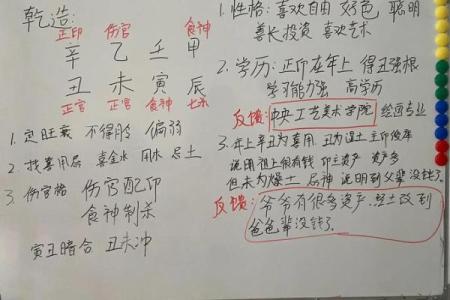 乾造:
正印 伤官 食神
辛 乙 壬 甲
丑 未 寅 辰
正官 正官 食神 七杀
1. 定旺衰 不得月令 偏弱
2. 找喜用忌 喜金水 用水 忌土
3. 伤官格 伤官配印
食神制杀
寅丑暗合 丑未冲
1. 性格: 喜欢自由 好色 聪明
善长投资 喜欢艺术
2. 学历: 正印在年上 得丑强根
学习能力强 高学历
反馈: 中央工艺美术学院 绘画专业
3. 年上辛丑为喜用 丑为湿土 主印
说明祖上很有钱 印主资产 资产多
但未为燥土 忌神 说明到父辈没钱了.
反馈: 爷爷有很多资产. 土改到
爸爸辈没钱了.